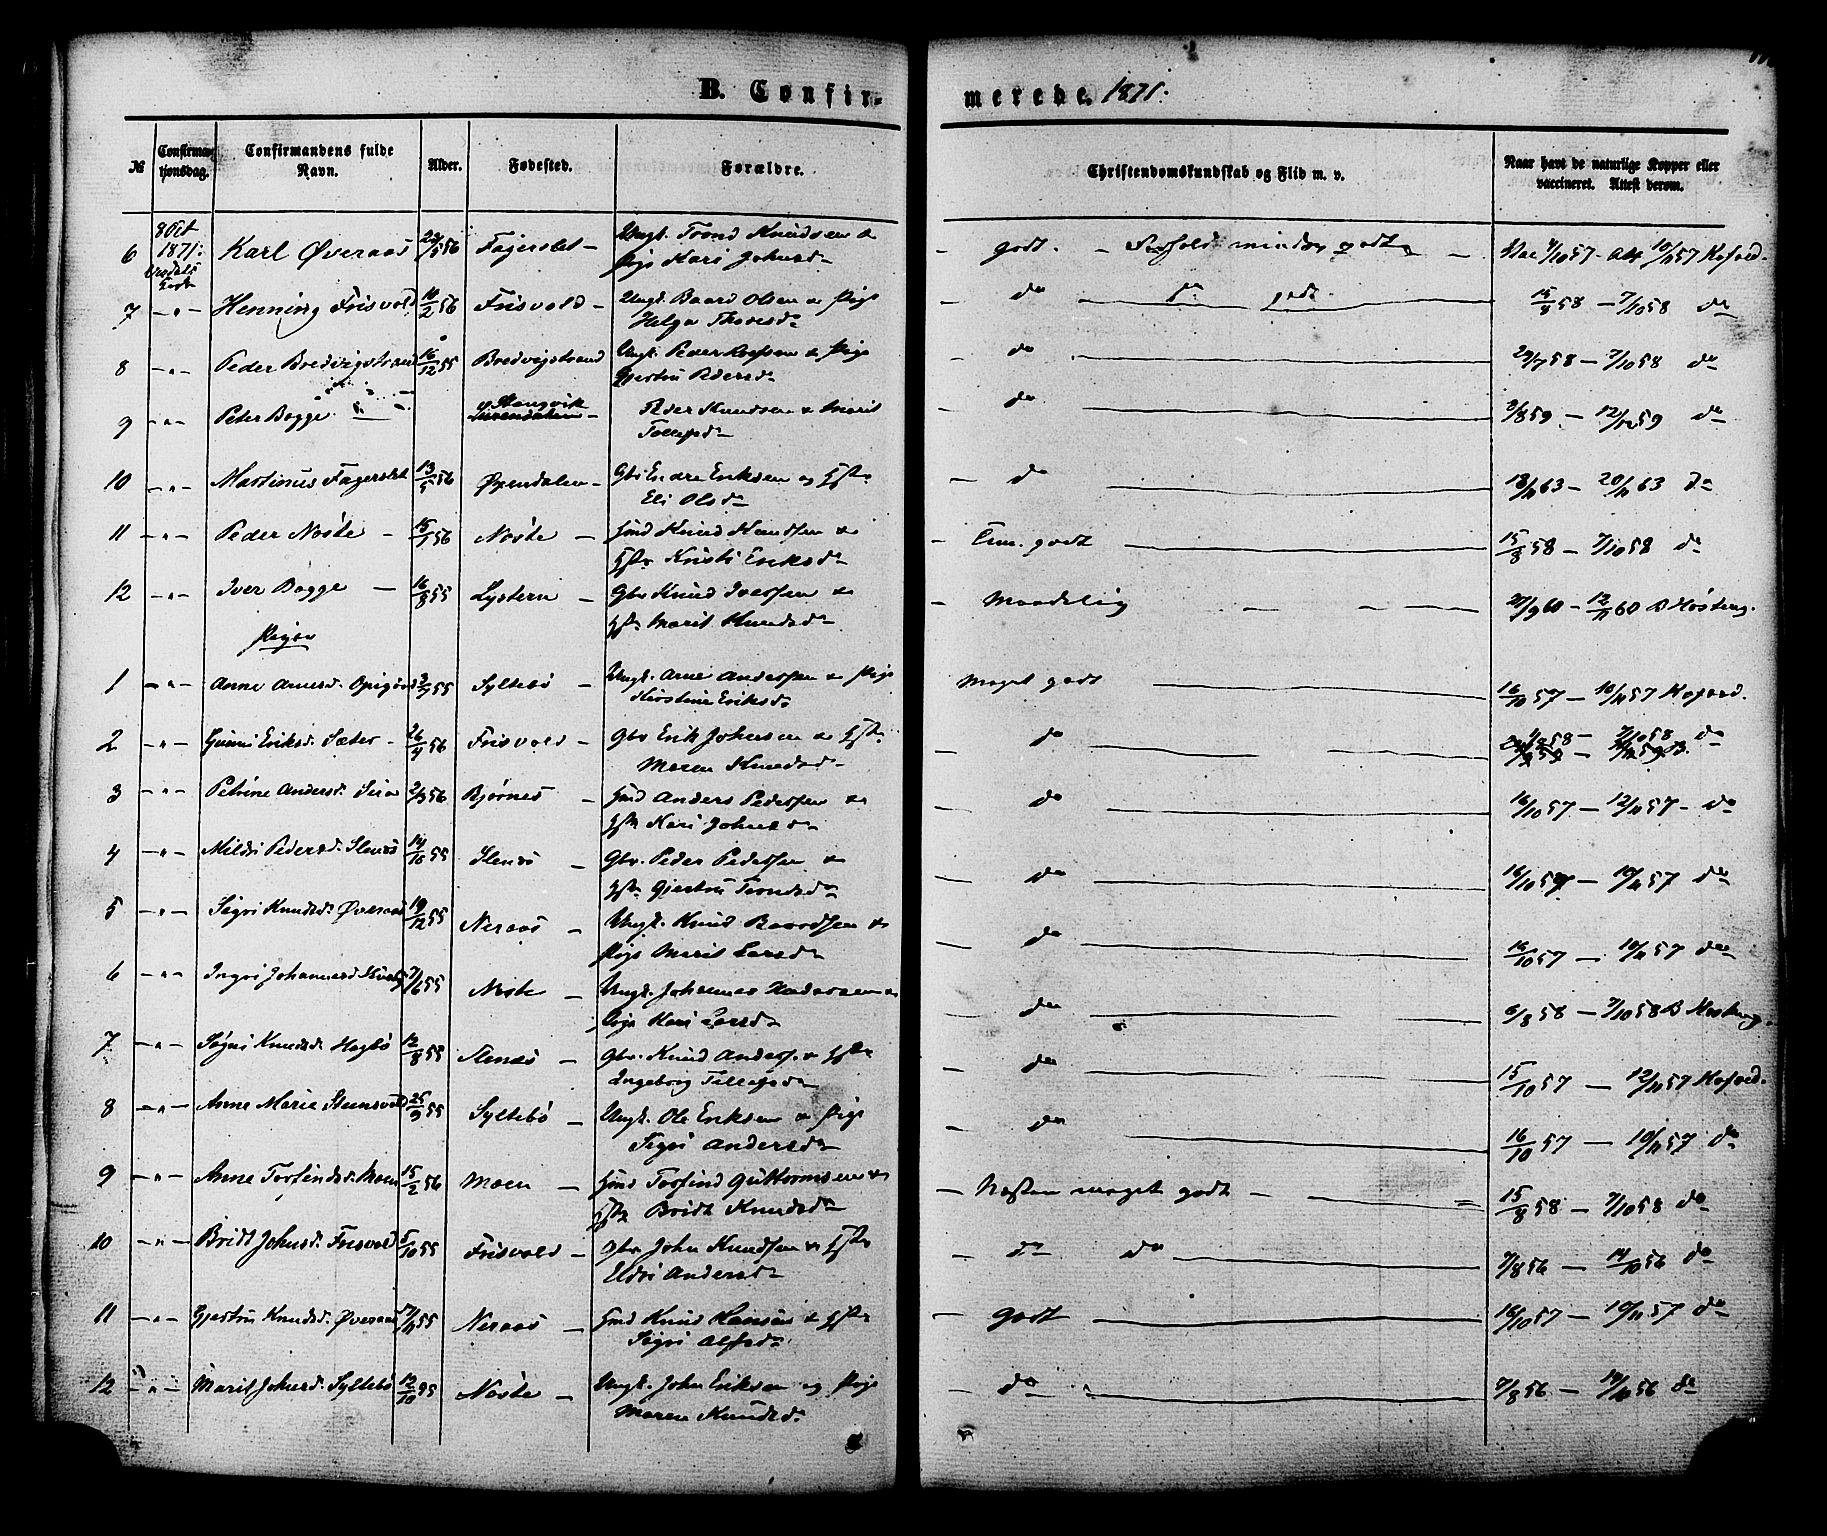 B. Confir-
merede. 1871.
№ Confirma-tjonsdag. Confirmandens fulde Navn. Alder. Fødested. Forældre. Christendomskundskab og Flid m. v. Naar havt de naturlige Kopper eller vaccineret. Attest derom.
6 8 Oct 1871. Karl Øveraas 56 Fagerslet - Ungk. Trond Knudsen &
Pige Kari Johnsd. - godt. - Forhold mindre godt - 57 - Att 57 Kofoed.
7 - " - Henning Frisvold 10/2 56 Frisvold - Ungk. Baard Olsen & Pige
Helga - do do godt. 15/8 58 - 7/10 58 do
8 - " - Peder Bredvigstrand 16/12 55 Bredvigstrand Ungk. Peder & Pige
Gjertru Pedersd. - do 29/7 58 - 7/10 58 do
9 - " - Peter Bogge - Stangvik
Surendalen - Peder Knudsen & Marit
Tollefsd. - do 2/8 59 - 12/12 59 do
10 - " - Martinus Fagerslet 13/5 56 Øxendalen - Gbr. Endre Eriksen og Hstr
Eli Olsd. - do 18/11 63 - 20/11 63 do
11 - " - Peder Nøste - 15/1 56 Nøste - Hmd Knud Knudsen &
Hstr Kristi Eriksd. - Tem. godt 15/8 58 - 7/10 58 do
12 - " - Iver Bogge - 16/8 55 Lystern - Gbr Knud Iversen &
Hstr Marit Knudsd. - Maadelig 60 - 12/11 60 B Høstmg.
Piger
1 - " - Anne Arnesd. 55 Syltebø - Ungk. Arne Andersen & Pige
Kirstine Eriksd. Meget godt 16/10 57 - 10/11 57 Kofoed.
2 - " - Gunni Eriksd. Sæter - 26/4 56 Frisvold - Gbr Erik Johnsen & Hstr
Maren Knudsd. do 58 - 7/10 58 do
3 - " - Petrine Andersd. 2/3 56 Bjørnes - Hmd Anders Pedersen &
Hstr Kari Johnsd. - do 16/10 57 - 12/11 57 - do
4 - " - Mildri Pedersd. Slenes 14/10 55 Slenes - Gbr. Peder Pedersen &
Hstr Gjertru Trondsd. - do 16/10 57 - 10/11 57 do
5 - " - Sigri Knudsd. Øveraas 19/12 55 Neraas - Ungk. Knud Baardsen &
Pige Marit Larsd. - do 16/10 57 - 10/11 57 do
6 - " - Ingri Johannesd. 7/6 55 Nøste - Ungk. Johannes &
Pige Kari Larsd. - do 6/8 58 - 7/10 58 B Høstmg.
7 - " - Sigri Knudsd. Hagbø 12/8 55 Slenes - Gbr. Knud Anders. & Hstr
Ingeborg Tollefsd. - do 15/10 57 - 12/11 57 Kofoed.
8 - " - Anne Marie 25/9 55 Syltebø - Ungk. Ole Eriksen & Pige
Sigri Andersd. - do 16/10 57 - 10/11 57 do
9 - " - Anne Torfindsd. Moen 15/2 56 Moen - Hmd Torfind Guttormsen &
Hstr Bridt Knudsd. - Næsten meget godt - 15/8 58 - 7/10 58 do
10 - " - Bridt Johnsd. Frisvold 5/10 55 Frisvold - Gbr John Knudsen & Hstr
Eldri Andersd. - do do 7/8 56 - 14/10 56 do
11 - " - Gjertru Knudsd. Øveraas 55 Neraas - Hmd Knud Hansen & Hstr
Sigri Alfsd. - godt 16/10 57 - 10/11 57 do
12 - " - Marit Johnsd. Syltebø 12/10 55 Nøste - Ungk. John Eriksen og Pige
Maren Knudsd. - do 7/8 56 - 56 do